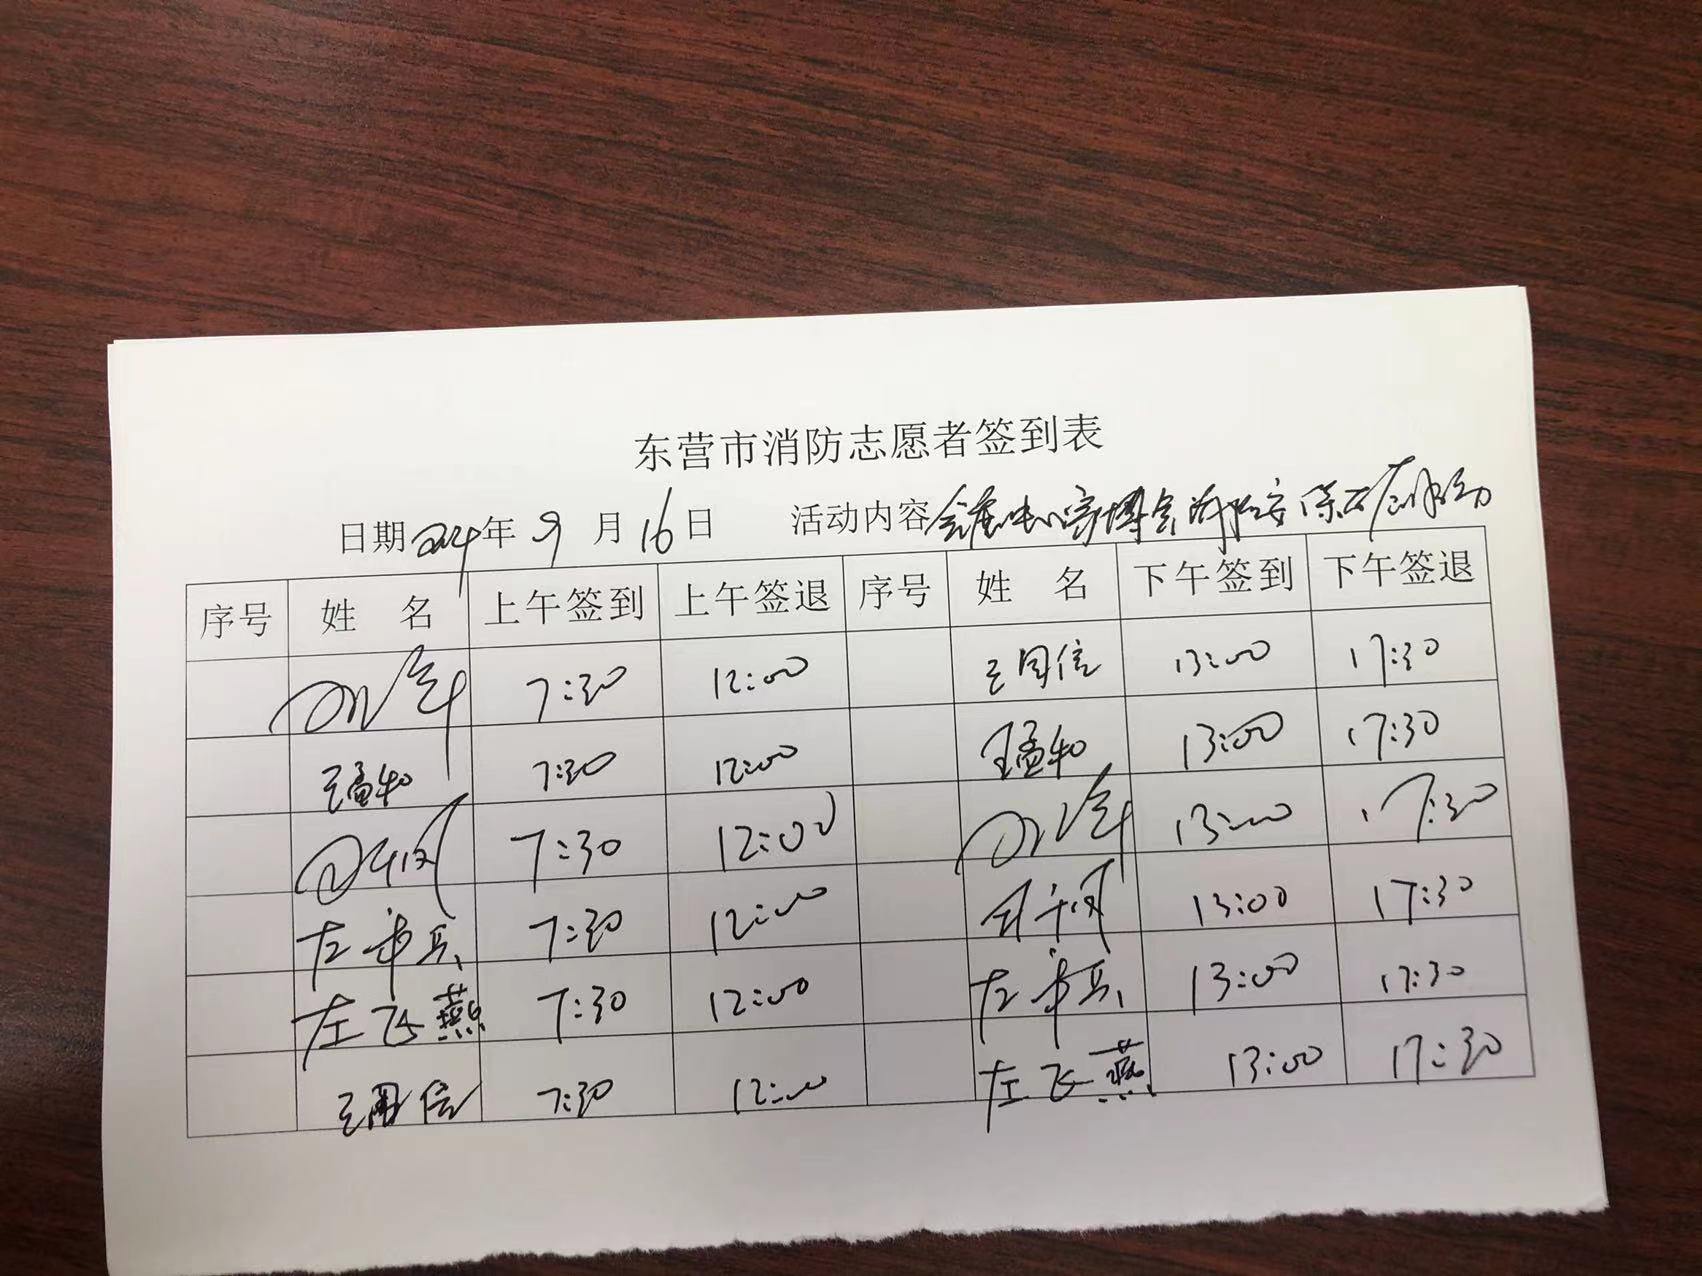 东营市消防志愿者签到表
日期2024年9月16日 活动内容会展中心家博会消防安保志愿活动
序号 姓 名 上午签到 上午签退 序号 姓 名 下午签到 下午签退
7:30 12:00 王国信 13:00 17:30
王孟和 7:30 12:00 王孟和 13:00 17:30
7:30 12:00 13:00 17:30
左 兵 7:30 12:00 13:00 17:30
左飞燕 7:30 12:00 左 兵 13:00 17:30
王国信 7:30 12:00 左飞燕 13:00 17:30